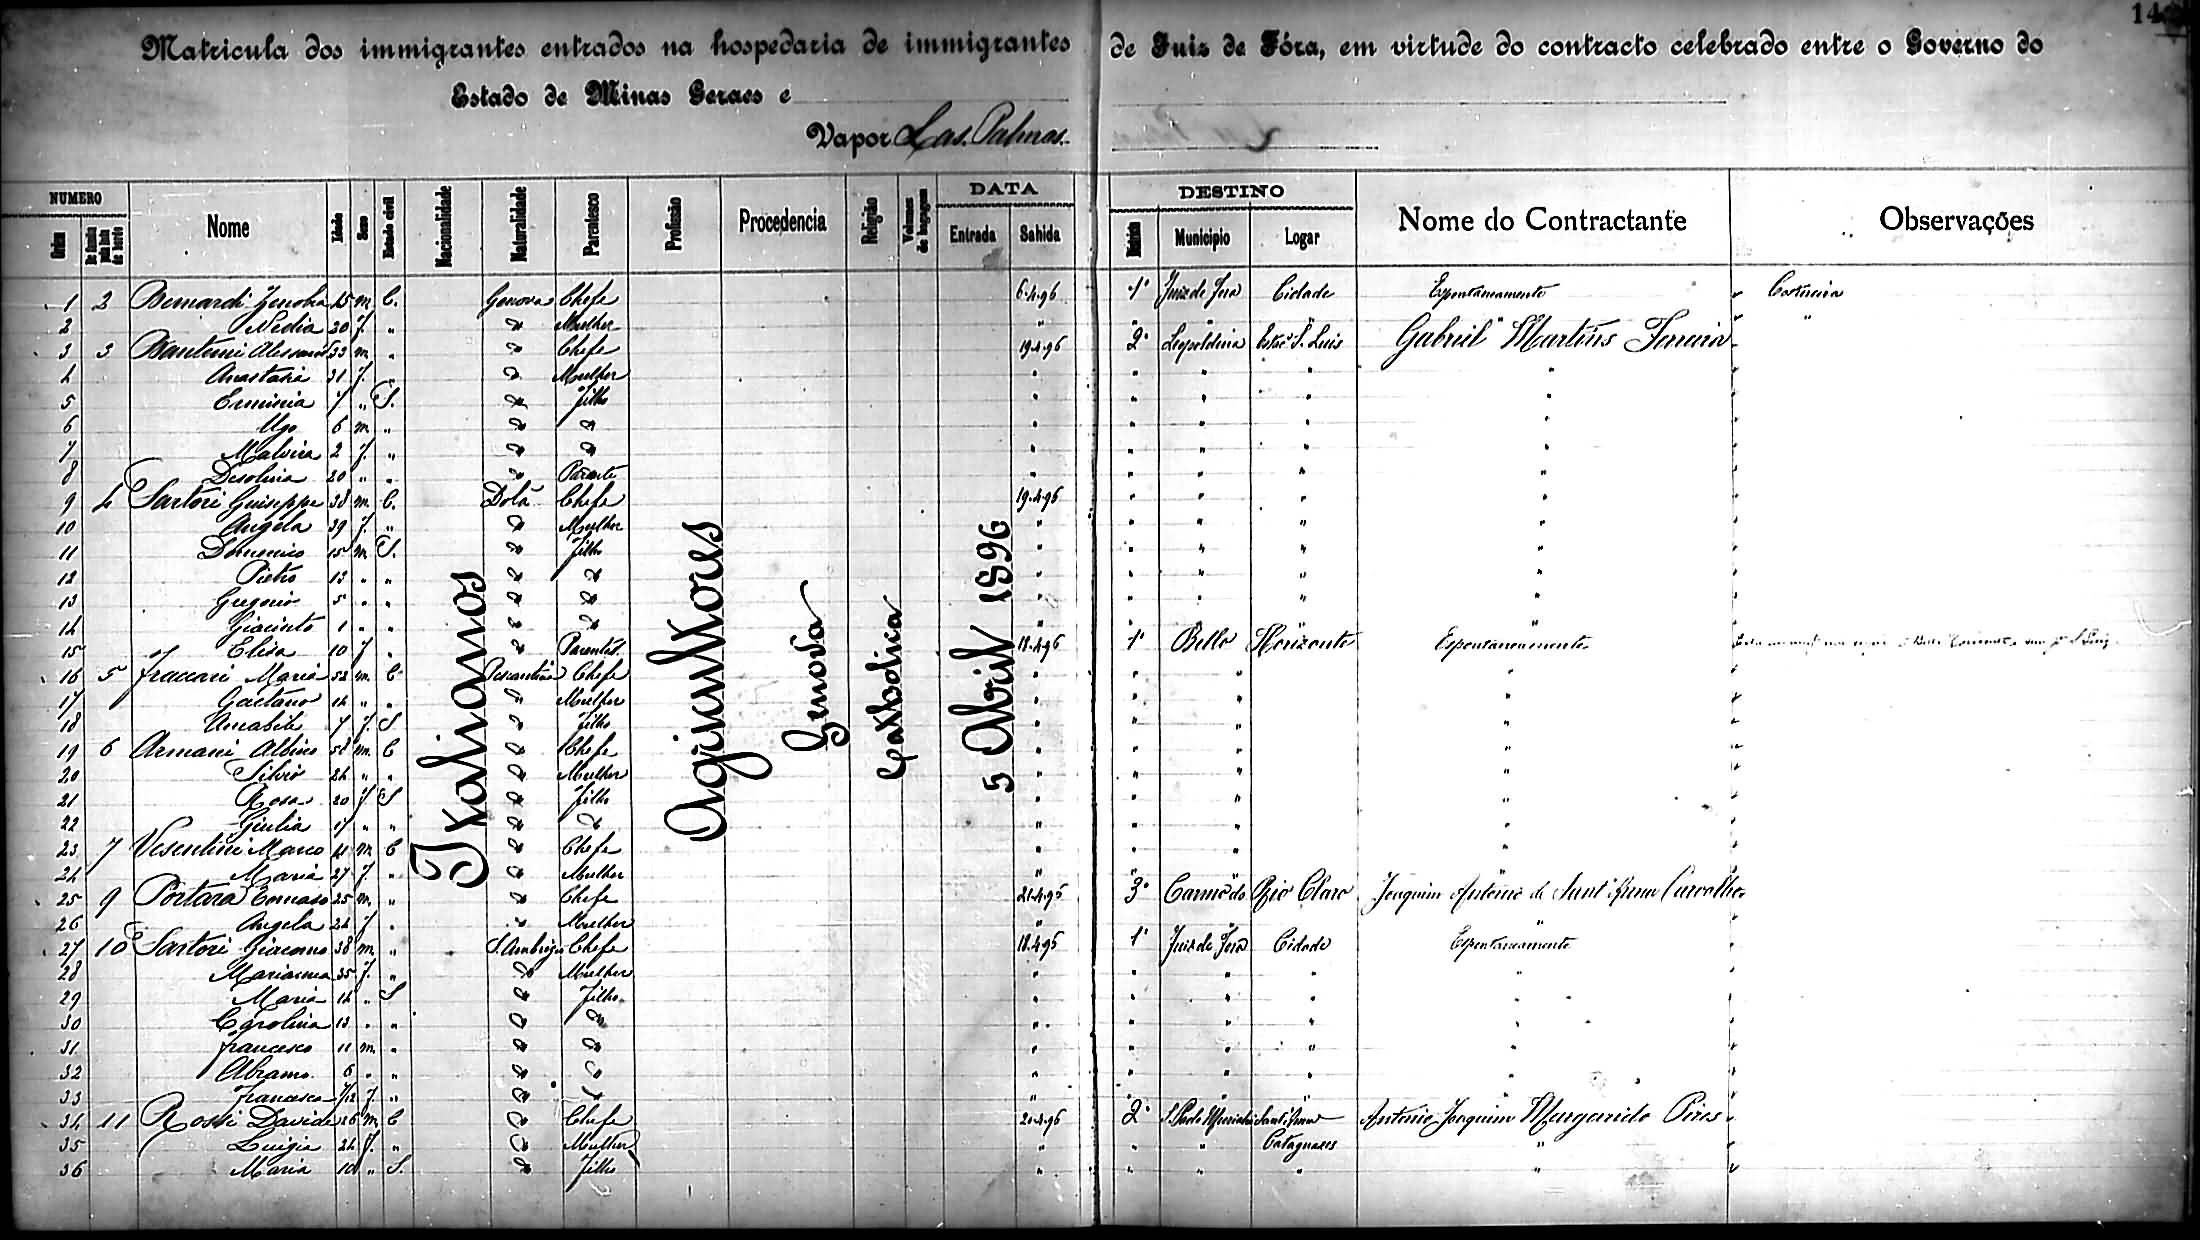 14
Matricula dos immigrantes entrados na hospedaria de immigrantes de Juiz de Fóra, em virtude do contracto celebrado entre o Governo do
Estado de Minas Geraes e
Vapor Las Palmas.
NUMERO DATA DESTINO
Ordem Nome Idade Sexo Estado civil Nacionalidade Naturalidade Parentesco Profissão Procedencia Religião Volumes de bagagem Entrada Sahida Districto Municipio Logar Nome do Contractante Observações
Italianos
Agricultores
Genova
Catholica
5 Abril 1896
1 2 Bernardi 45 m. C. Genova Chefe 6.4.96 1º Juiz de Fora Cidade Espontaneamente
2 20 f. " " Mulher " " " " "
3 3 33 m. " " Chefe 19.4.96 2º Leopoldina Estac. S. Luis Gabriel Martins Ferreira
4 Anastasia 31 f. " " Mulher " " " " "
5 Erminia 7 " S. " Filho " " " " "
6 Ugo 6 m. " " " " " " "
7 Malvina 2 f. " " " " " " "
8 Desolina 20 " " " Parente " " " " "
9 4 Sartori Guiseppe 38 m. C. Chefe 19.4.96 " " " "
10 Angela 39 f. " " Mulher " " " " "
11 Domenico 15 m. S. " Filho " " " " "
12 Pietro 13 " " " " " " " " "
13 Gregorio 5 " " " " " " " " "
14 Giacinto 1 " " " " " " " "
15 Elisa 10 f. " " Parente 18.4.96 1º Bello Horizonte Espontaneamente
16 5 Fraccari Maria 52 m. C Pescantina Chefe " " " "
17 Gaetano 14 " " " Mulher " " " "
18 Amabile 7 f. S " Filho " " " "
19 6 Armani Albino 58 m. C " Chefe " " " "
20 Silvio 24 " " " Mulher " " " "
21 Rosa 20 f S " Filho " " " "
22 Giulia 17 " " " " " " " "
23 7 Vesentini Marco 41 m. C " Chefe " " " "
24 Maria 27 f. " " Mulher "
25 9 Portara Tomaso 25 m. " " Chefe 21.4.96 3º Carmo do Rio Claro Joaquim Antonio de Sant'Anna Carvalho
26 Angela 24 f " " Mulher " "
27 10 Sartori Giacomo 38 m. " S. Ambrogio Chefe 18.4.96 1º Juiz de Fora Cidade Espontaneamente
28 Marianna 35 f. " " Mulher " " " " "
29 Maria 14 " S " Filho " " " " "
30 Carolina 13 " " " " " " " " "
31 Francesco 11 m. " " " " " " " "
32 Abramo 6 " " " " " " " " "
33 Francesca 7/12 f. " " " " " " "
34 11 Rossi Davide 26 m. C " Chefe 20.4.96 2º Sant'Anna Antonio Joaquim Margarido Pires
35 Luigia 24 f. " " Mulher " " " Cataguazes "
36 Maria 10 " S. " Filho " " " " "